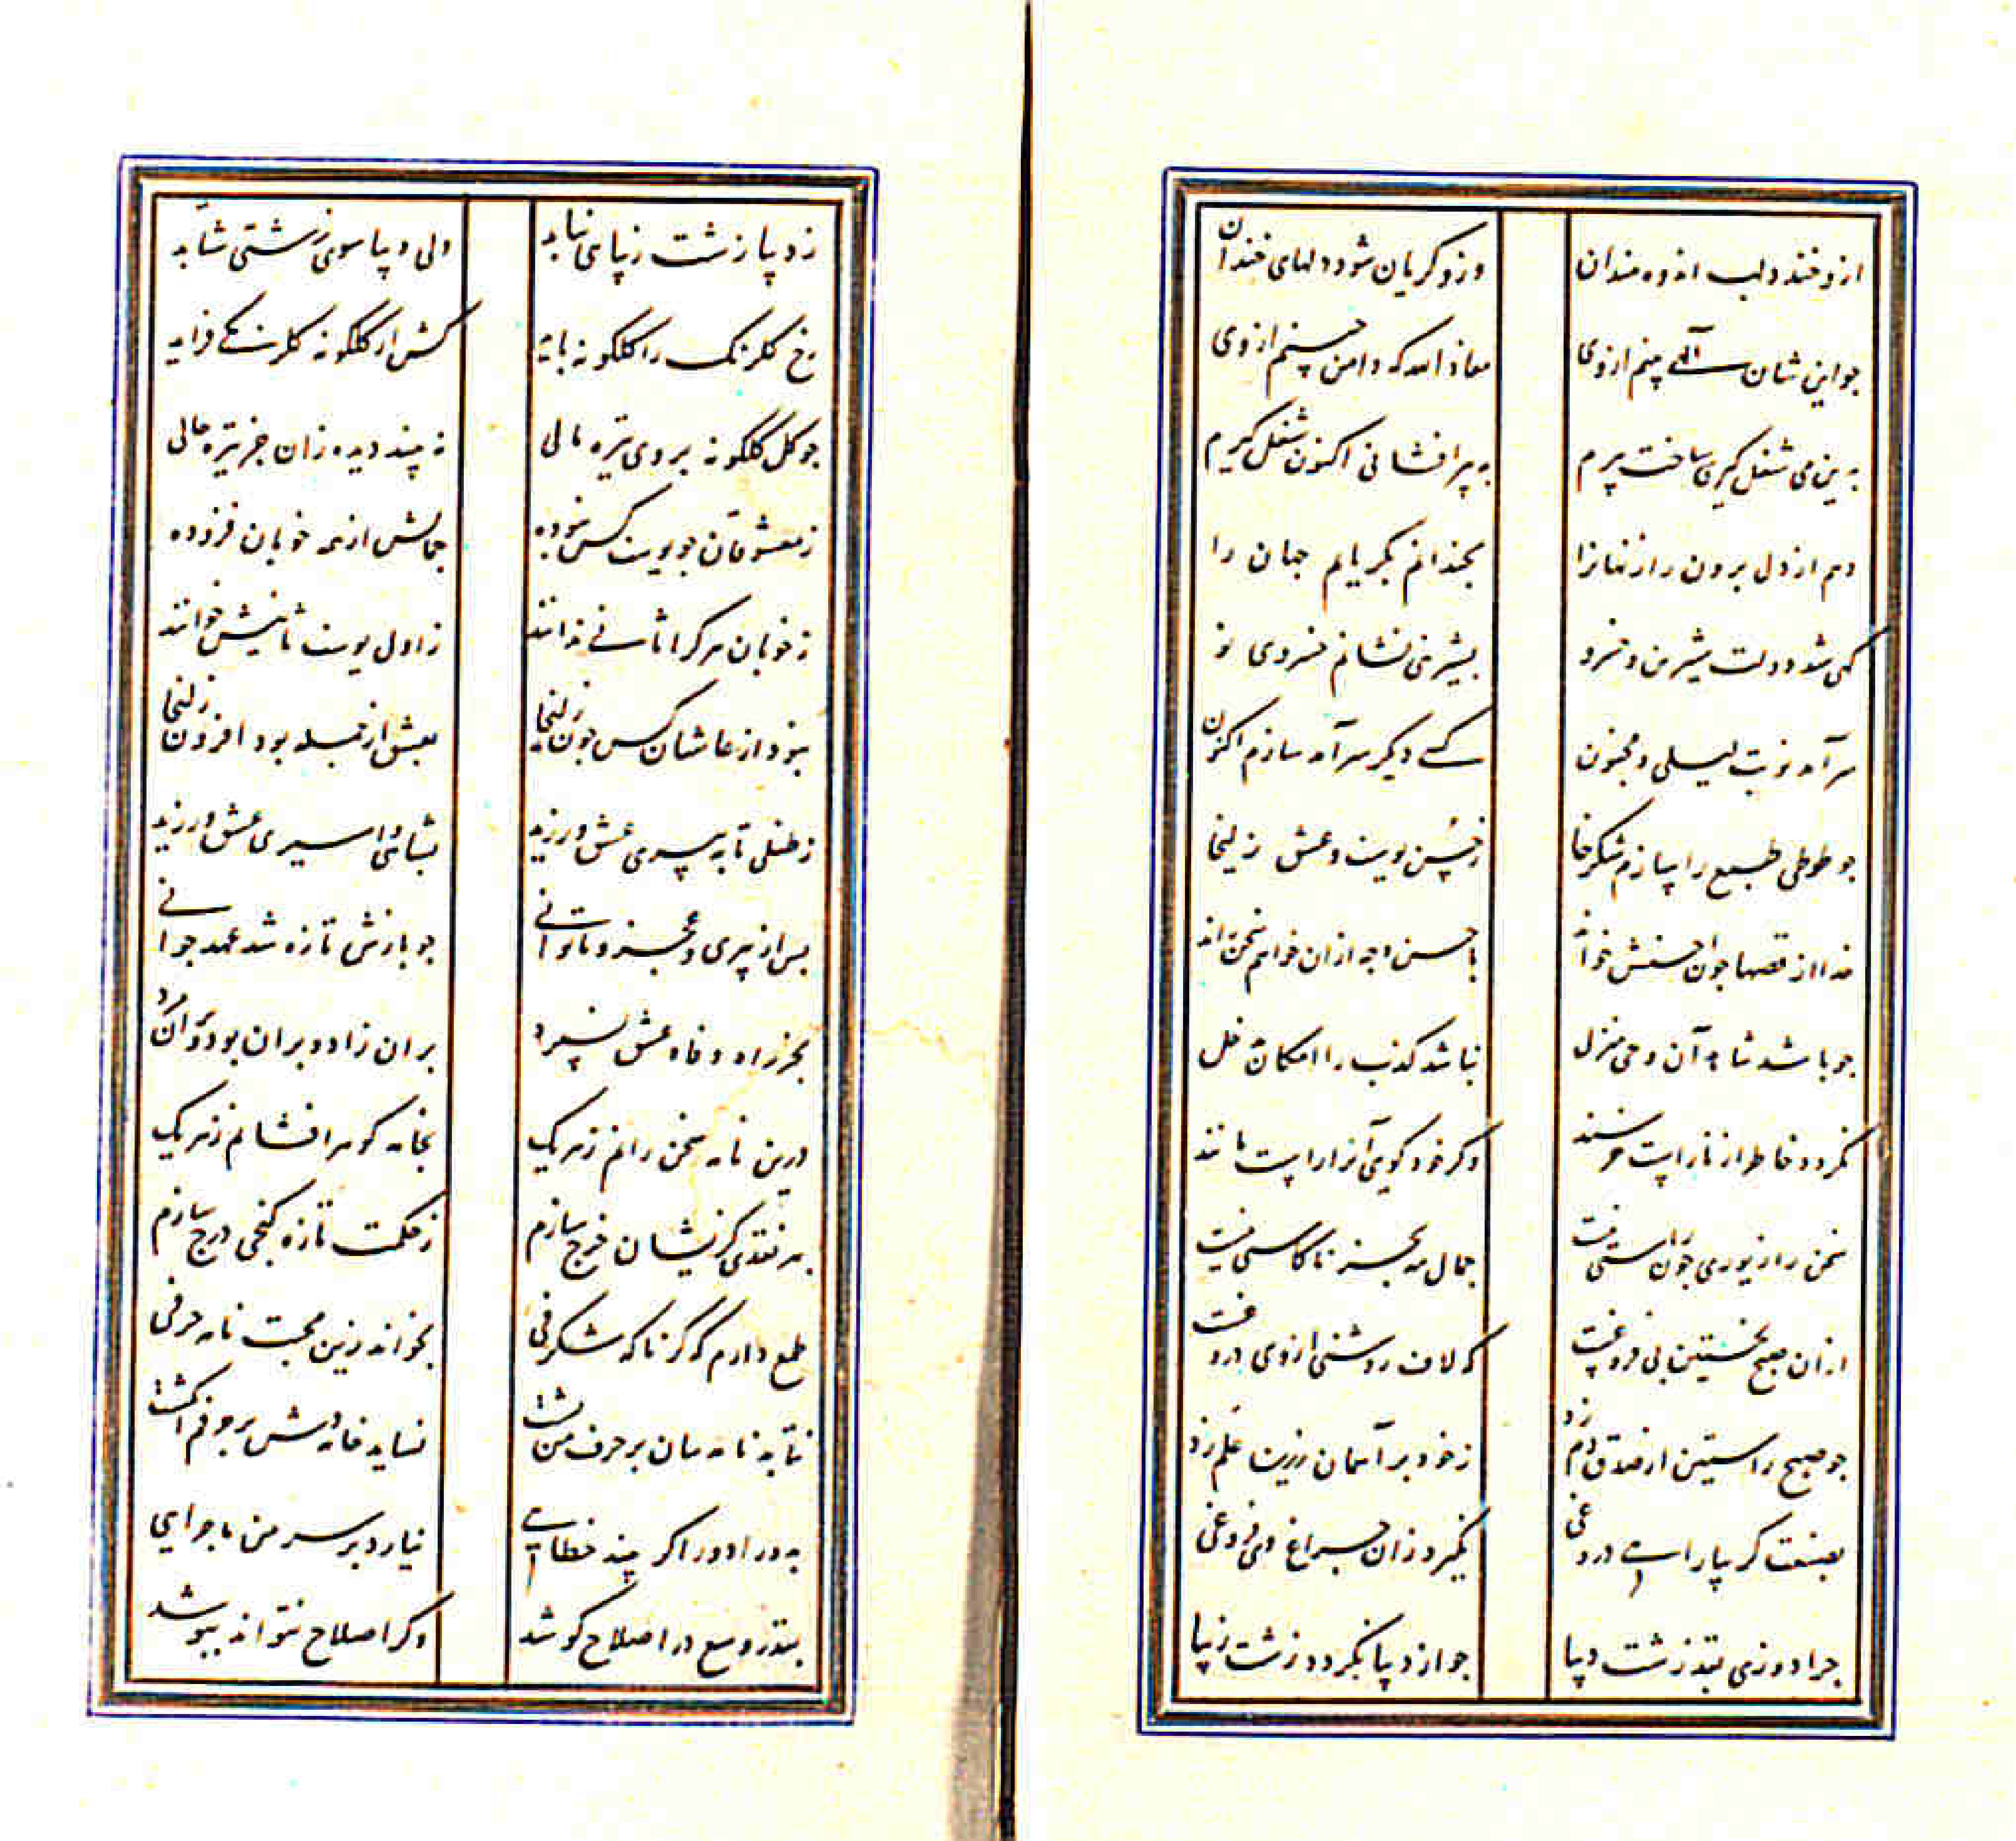 ازو خندد لب اندوه مندان ورو گریان شود دلهای خندان
جو این شان سآلی بینم از وی معاذ الله که دامن چینم از وی
به بن می شغل گیری ساخت پیرم به پیرافشانی اکنون شغل گیرم
دهم از دل برون راز نهانرا بخندانم بگریانم جهان را
کهن شد دولت شیرین و خسرو بشیرینی نشانم خسروی نو
سرآمد نوبت لیلی و مجنون کسی دیگر سرآمد سازم اکنون
جو طوطی طبع را سازم شکرخا ز حسن یوسف و عشق زلیخا
خدا از قصها جون احسنش خواند باحسن وجه ازان خواهم سخن راند
جو باشد شاهد آن وحی منزل نباشد کذب را امکان مدخل
نکردد خاطر از ناراست خرسند وکر خود کوئی آنرا راست مانند
سخن را زیوری جون راستی نیست جمال مه بجز ناکاستی نیست
ازان صبح نخستین بی فروغست که لاف روشنی از وی دروغست
جو صبح راستین از صدق دم زد ز خود بر آسمان زرین علم زد
بصنعت کر بیارایی دروغی نکیرد زان جراغ دل فروغی
جرا دوزی بقد زشت دیبا جو از دیبا نکردد زشت زیبا
ز دیبا زشت زیبایی نیابد ولی دیبا سوی زشتی شتابد
رخ کلرنک را کلکونه باید کش از کلکونه کلرنکی فزاید
جو کل کلکونه بر روی تیره مالی نه بیند دیده زان جز تیره حالی
ز معشوقان جو یوسف کس نبوده جمالش از همه خوبان فزوده
ز خوبان هرکرا ثانی ندانند ز اول یوسف ثانیش خوانند
نبود از عاشقان کس جون زلیخا بعشق از جمله بود افزون زلیخا
ز طفلی تا به پیری عشق ورزید بشاهی و اسیری عشق ورزید
بس از پیری و عجز و ناتوانی جو بازش تازه شد عهد جوانی
بجز راه وفا و عشق نسپرد بران زاد و بران بود و بران مرد
درین نامه سخن رانم ز هر یک بخامه کوهر افشانم ز هر یک
بهر نقدی کزیشان خرج سازم ز حکمت تازه کنجی درج سازم
طمع دارم که کر ناکه شکرفی بخواند زین محبت نامه حرفی
نتابد نامه سان بر حرف من پشت نساید خامه وش بر حرفم انکشت
به دور ادور اکر بیند خطایی نیارد بر سر من ماجرایی
بقدر وسع در اصلاح کوشد وکر اصلاح نتواند بپوشد